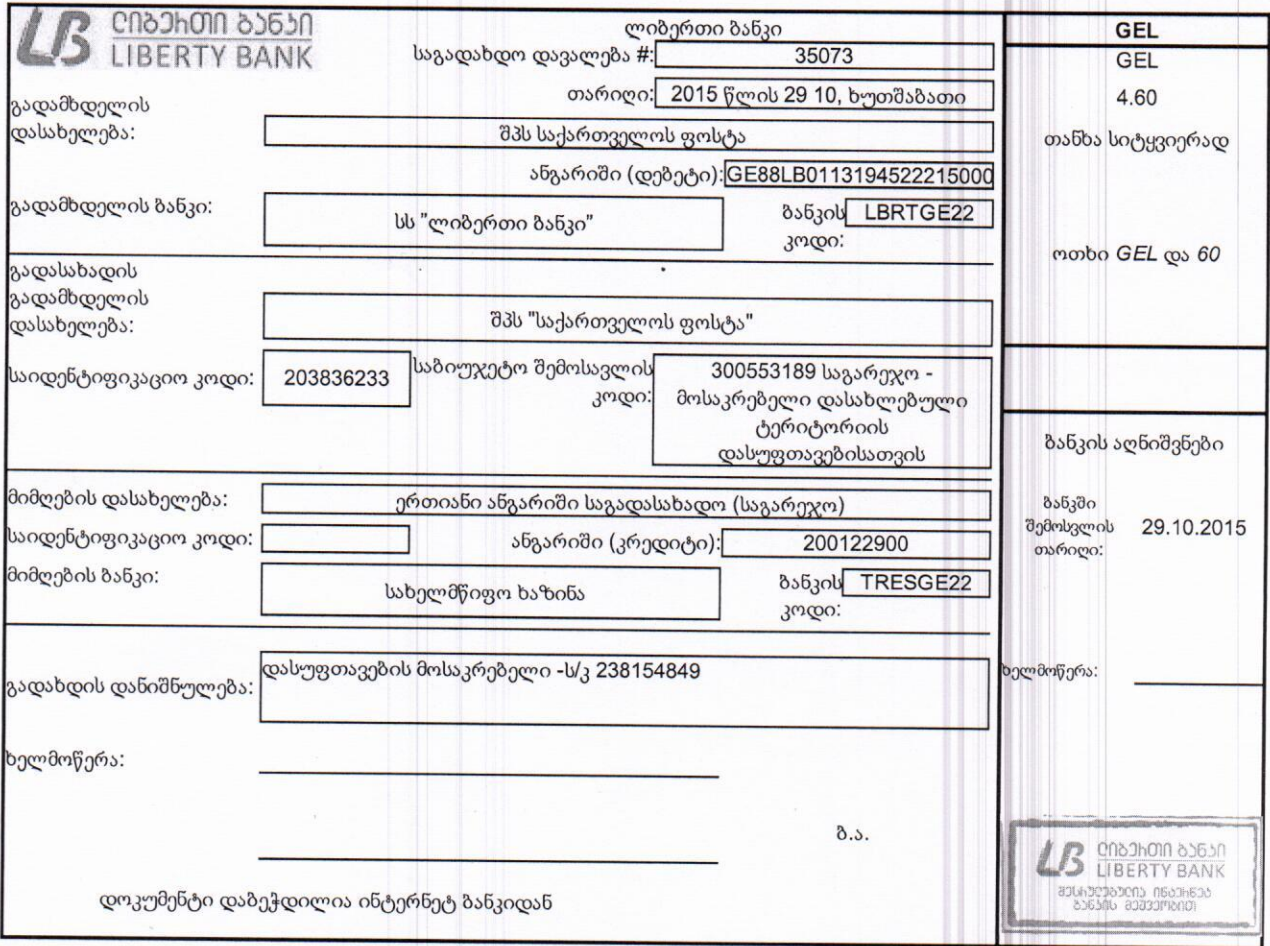 ლიბერთი ბანკი
LIBERTY BANK
ლიბერთი ბანკი
საგადახდო დავალება #: 35073
თარიღი: 2015 წლის 29 10, ხუთშაბათი
გადამხდელის
დასახელება: შპს საქართველოს ფოსტა
ანგარიში (დებეტი): GE88LB0113194522215000
გადამხდელის ბანკი: სს "ლიბერთი ბანკი" ბანკის კოდი: LBRTGE22
გადასახადის
გადამხდელის
დასახელება: შპს "საქართველოს ფოსტა"
საიდენტიფიკაციო კოდი: 203836233
საბიუჯეტო შემოსავლის
კოდი:
300553189 საგარეჯო -
მოსაკრებელი დასახლებული
ტერიტორიის
დასუფთავებისათვის
მიმღების დასახელება: ერთიანი ანგარიში საგადასახადო (საგარეჯო)
საიდენტიფიკაციო კოდი: ანგარიში (კრედიტი): 200122900
მიმღების ბანკი: სახელმწიფო ხაზინა ბანკის კოდი: TRESGE22
გადახდის დანიშნულება: დასუფთავების მოსაკრებელი -ს/კ 238154849
ხელმოწერა:
ბ.ა.
დოკუმენტი დაბეჭდილია ინტერნეტ ბანკიდან
GEL
GEL
4.60
თანხა სიტყვიერად
ოთხი GEL და 60
ბანკის აღნიშვნები
ბანკში
შემოსვლის
თარიღი:
29.10.2015
ხელმოწერა:
ლიბერთი ბანკი
LIBERTY BANK
შესრულებულია ინტერნეტ
ბანკის მეშვეობით